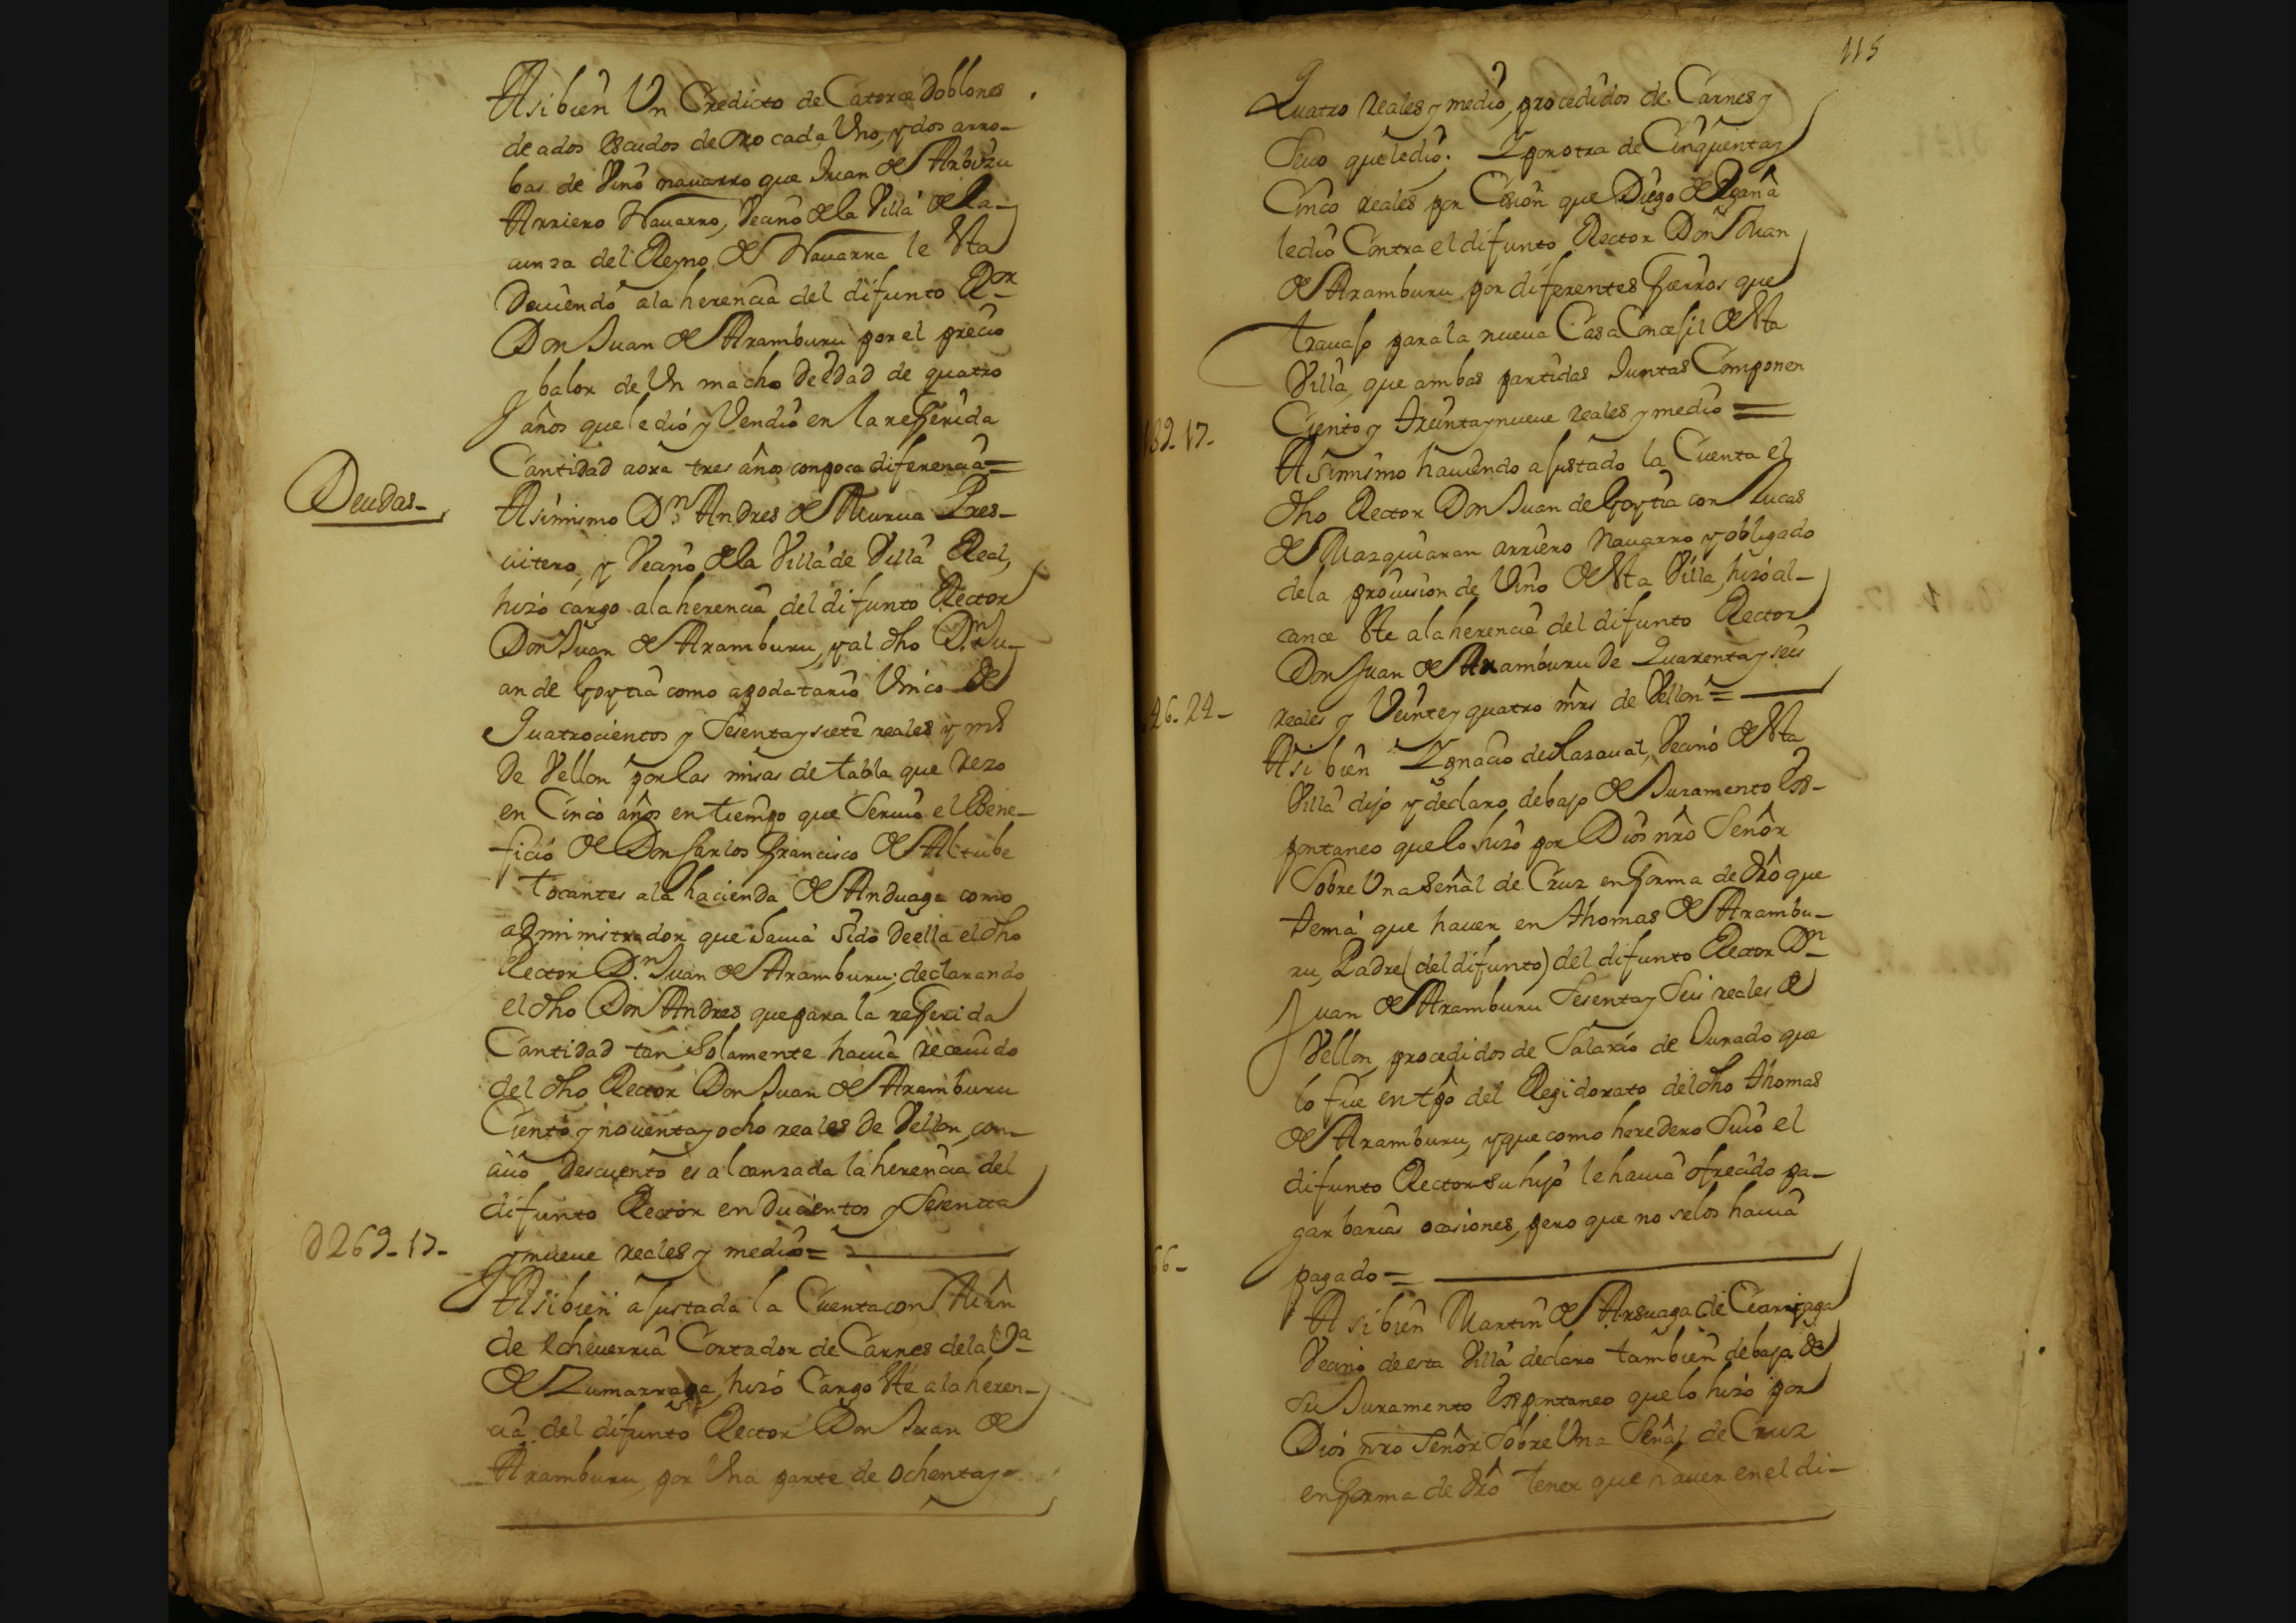 Asibien Un Credicto de Catorce Doblones
de ados escudos de oro cada Uno, y dos arro-
bas de Vino navarro que Juan de Arbizu
Arriero Navarro, Vecino de la Villa de La-
cunza del Reyno de Navarra le Sta
Deviendo ala herencia del difunto Ror
Don Juan de Aramburu por el precio
y balor de Un macho De edad de quatro
años que le dió y Vendió en la refferida
Cantidad aora tres años con poca diferencia=
Deudas-
Asimismo Dn Andres de Murua Pres-
vitero, y Vecino de la Villa de Villa Real,
hizo cargo ala herencia del difunto Rector
Don Juan de Aramburu, y al dho Dn Ju-
an de Goytia como apodatario Unico de
Quatrocientos y Sesenta y siete reales y mº
De Vellon por las misas de tabla que Rezo
en Cinco años en tiempo que Sirvio el Bene-
ficio de Don Carlos Francisco de Altube
tocantes ala hacienda de Anduaga como
administrador que havia Sido De ella el dho
Rector Dn Juan de Aramburu; declarando
el dho Don Andres que para la refferida
Cantidad tan Solamente havia Recevido
del dho Rector Don Juan de Aramburu
Ciento y noventa y ocho reales de Vellon, con
cuio Descuento es alcanzada la herencia del
difunto Rector en Ducientos y Sesenta
D269-17-
y nueve reales y medio=
Asibien ajustada la Cuenta con
de echeverria Cortador de Carnes de la Va
de Zumarraga, hizo Cargo Ste ala heren-
cia del difunto Rector Don Juan de
Aramburu, por Una parte de ochenta y
115
Quatro Reales y medio, procedidos de Carnes y
Sevo que le dió; Y por otra de Cinquenta y
Cinco reales por Cesion que Diego de Egaña
le dió Contra el difunto Rector Don Juan
de Aramburu por diferentes fierros que
travajo para la nueva Casa Concejil de Sta
Villa, que ambas partidas Juntas Componen
139-17-
Ciento y treinta y nueve reales y medio=
Asimismo haviendo ajustado la Cuenta el
dho Rector Don Juan de Goytia con Lucas
de Mazquiaran arriero Navarro y obligado
de la provision de Vino de Sta Villa, hizo al-
cance Ste ala herencia del difunto Rector
Don Juan de Aramburu De Quarenta y seis
46-24-
reales y Veinte y quatro mrs de Vellon=
Asi bien Ygnacio de Lasaval, Vecino de Sta
Villa dijo y declaro debajo de Juramento Es-
pontaneo que lo hizo por Dios nro Señor
Sobre Una Señal de Cruz en forma de dro que
tenia que haver en Thomas de Arambu-
ru, Padre (del difunto) del difunto Rector Dn
Juan de Aramburu Sesenta y Seis reales de
Vellon, procedidos de Salario de Jurado que
lo fue en tpo del Regidorato del dho Thomas
de Aramburu, y que como heredero Suio el
difunto Rector su hijo le havia ofrecido pa-
gar barias ocasiones, pero que no selos havia
66-
pagado=
Asi bien Martin de Arsuaga de
Vecino de esta Villa declaro tambien debajo de
Su Juramento Espontaneo que lo hizo por
Dios nro Señor Sobre Una Señal de Cruz
en forma de dro tener que haver en el di-